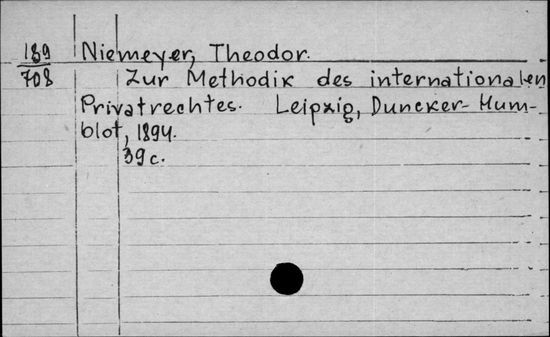 189 Niemeyer, Theodor.
708 Zur Methodik des internationalen
Privatrechtes. Leipzig, Duncker-Hum-
blot, 1894.
39 c.